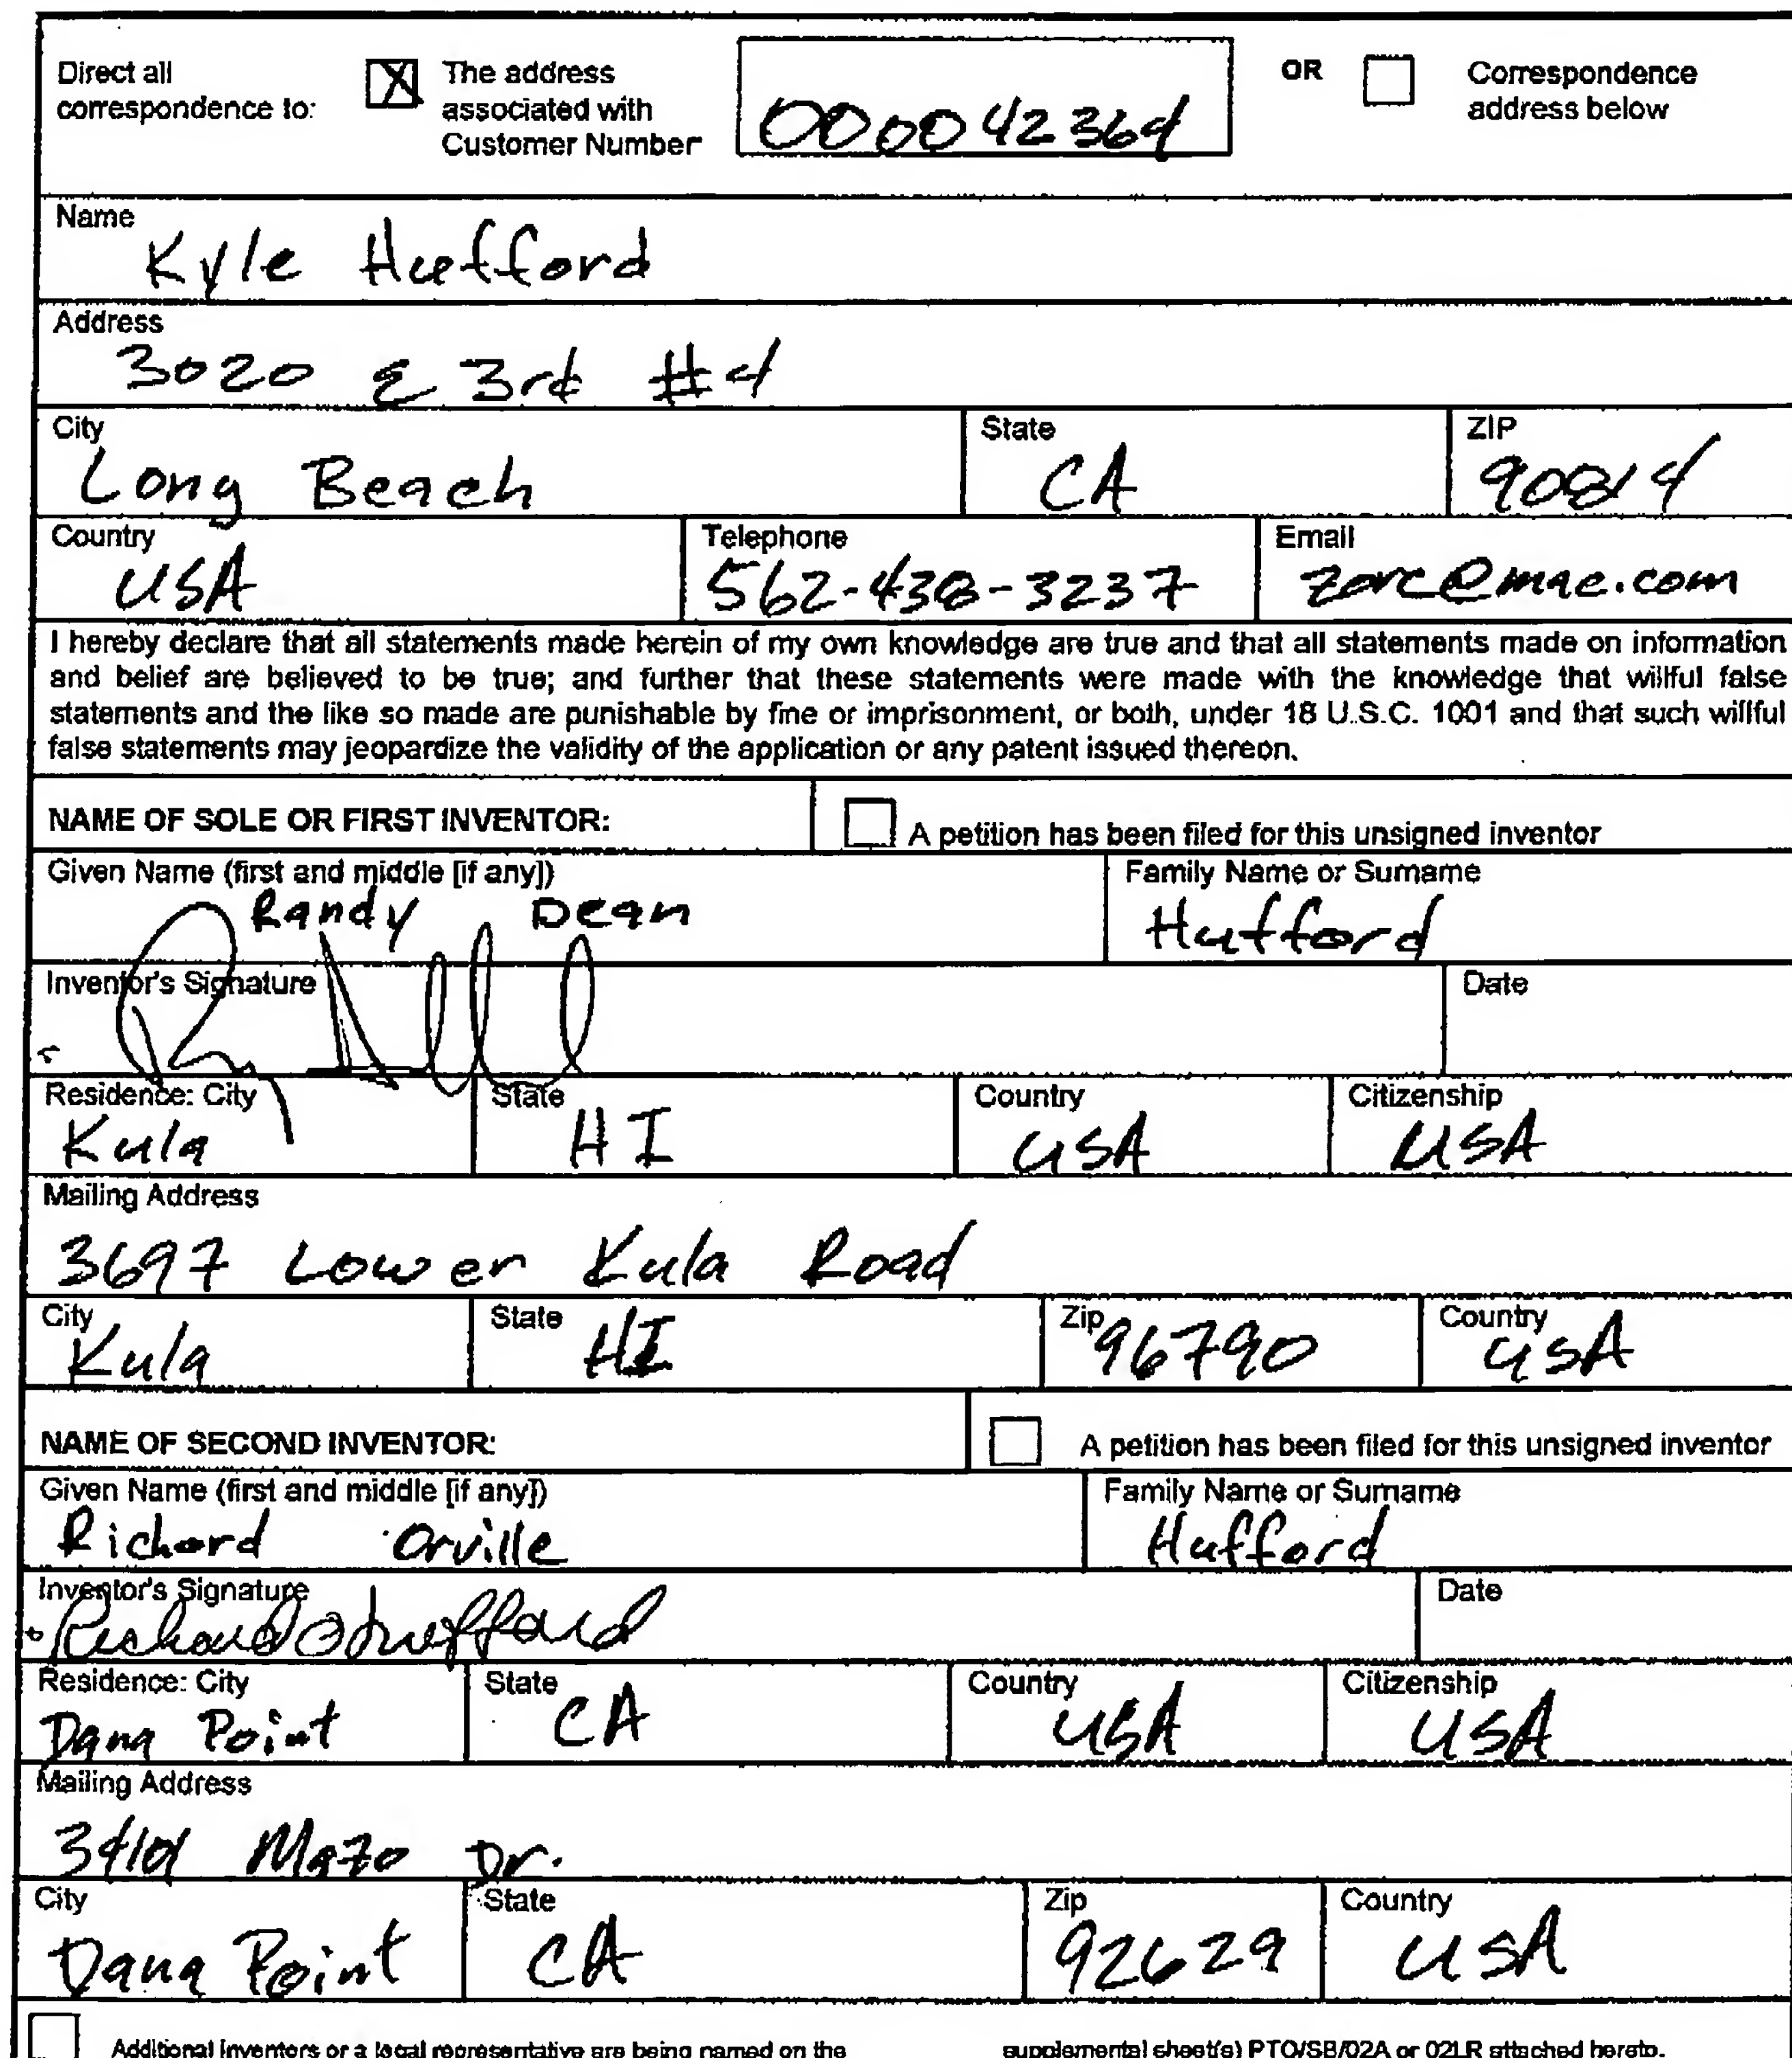 Direct all correspondence to: X The address associated with Customer Number 0000 42364 OR Correspondence address below
Name
Kyle Hufford
Address
3020 E 3rd #4
City State ZIP
Long Beach CA 90814
Country Telephone Email
USA 562-438-3237 zorc@mac.com
I hereby declare that all statements made herein of my own knowledge are true and that all statements made on information
and belief are believed to be true; and further that these statements were made with the knowledge that willful false
statements and the like so made are punishable by fine or imprisonment, or both, under 18 U.S.C. 1001 and that such willful
false statements may jeopardize the validity of the application or any patent issued thereon.
NAME OF SOLE OR FIRST INVENTOR: A petition has been filed for this unsigned inventor
Given Name (first and middle [if any]) Family Name or Surname
Randy Dean Hufford
Inventor's Signature Date
Residence: City State Country Citizenship
Kula HI USA USA
Mailing Address
3697 Lower Kula Road
City State Zip Country
Kula HI 96790 USA
NAME OF SECOND INVENTOR: A petition has been filed for this unsigned inventor
Given Name (first and middle [if any]) Family Name or Surname
Richard Orville Hufford
Inventor's Signature Date
Richard O Hufford
Residence: City State Country Citizenship
Dana Point CA USA USA
Mailing Address
Mazo Dr.
City State Zip Country
Dana Point CA 92629 USA
Additional inventors or a legal representative are being named on the supplemental sheet(s) PTO/SB/02A or 02LR attached hereto.